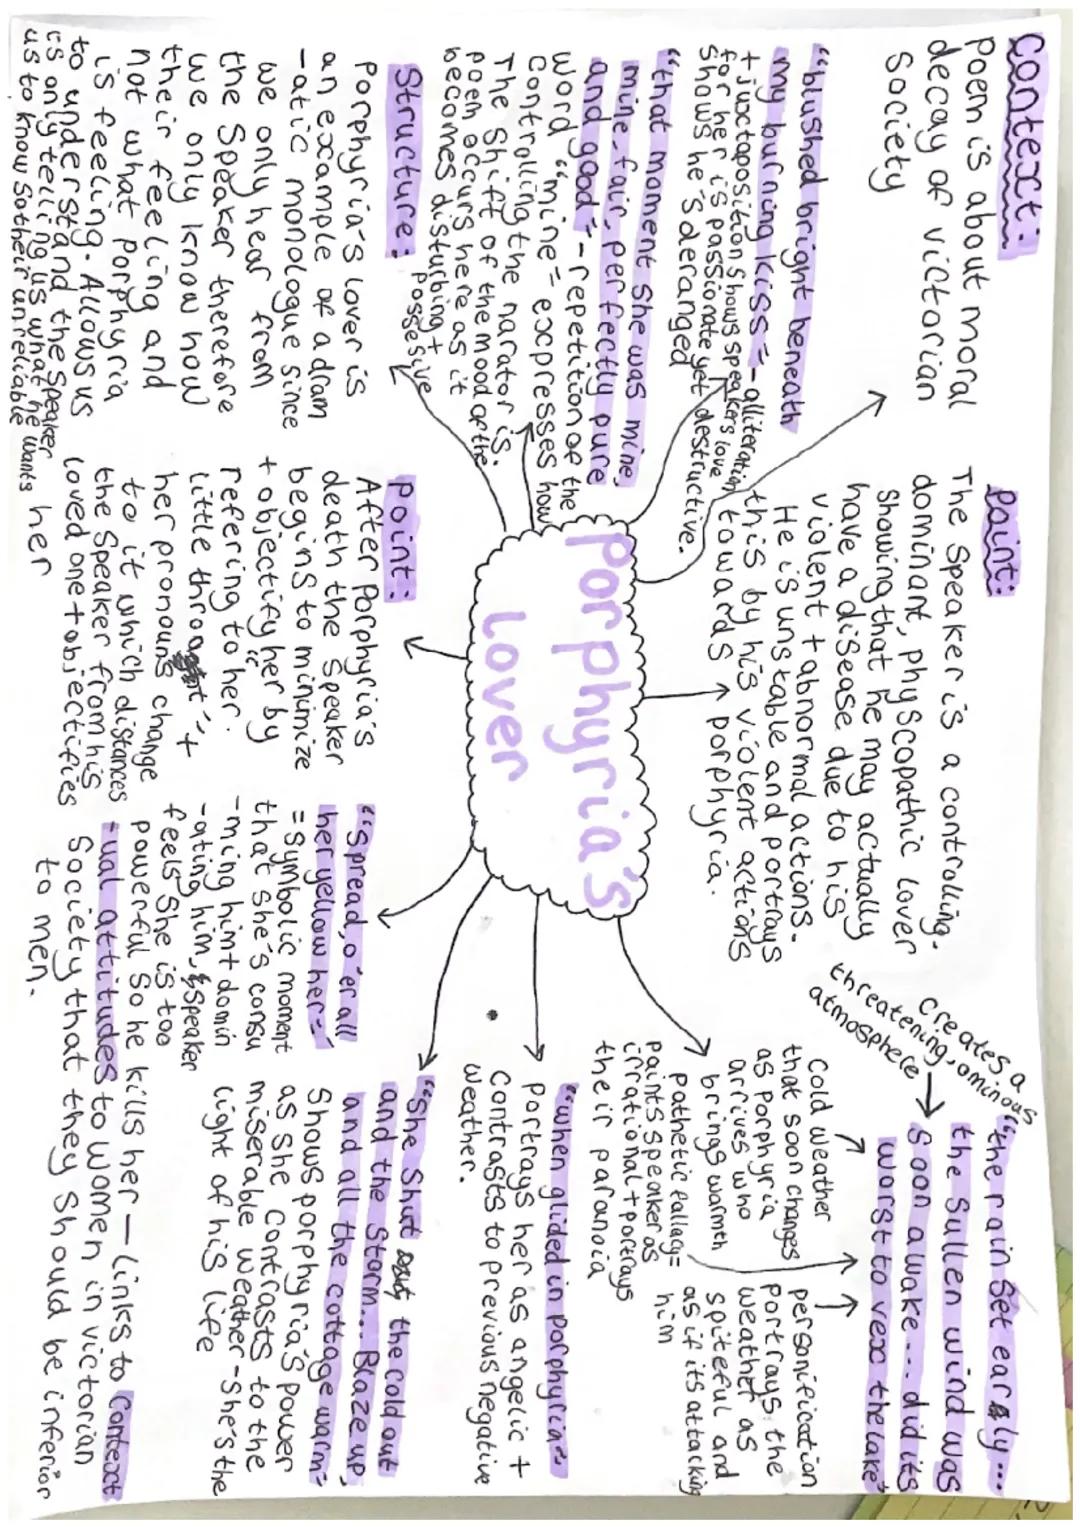 Context:
poem is about moral
decay of victorian
society
"blushed bright beneath
my burning kiss" - alliteration
+ juxtaposition shows speakers love
for her is passionate yet destructive.
shows he's deranged
"that moment she was mine,
mine, fair, perfectly pure
and good" - repetition of the
word "mine" expresses how
controlling the narator is.
The shift of the mood of the
poem occurs here as it
becomes disturbing +
possesive
Structure:
Porphyria's lover is
an example of a dram
-atic monologue since
we only hear from
the speaker therefore
we only know how
their feeling and
not what porphyria
is feeling. Allows us
to understand the speaker
is only telling us what he wants
us to know so their unreliable
point:
The speaker is a controlling,
dominant, physcopathic lover
showing that he may actually
have a disease due to his
violent + abnormal actions.
He is unstable and portrays
this by his violent actions
towards porphyria.
Porphyria's
Lover
point:
After Porphyria's
death the speaker
begins to minimize
+ objectify her by
refering to her "
little throat" +
her pronouns change
to it which distances
the speaker from his
loved one + objectifies
her
"the rain set early...
the sullen wind was
soon awake... did its
worst to vex the lake"
creates a
threatening, ominous
atmosphere
cold weather
that soon changes
as porphyria
arrives who
brings warmth
pathetic fallacy =
paints speaker as
irrational + portrays
their parounoia
personification
portrays the
weather as
spiteful and
as if its attacking
him
"when glided in porphyria"
portrays her as angelic +
contrasts to previous negative
weather.
"She shut the cold out
and the storm.... Blaze up,
and all the cottage warm"
shows porphyria's power
as she contrasts to the
miserable weather - she's the
light of his life
"spread, o'er all
her yellow her"
= symbolic moment
that she's consu
-ming him + domin
-ating him, & speaker
feels she is too
powerful so he kills her — links to context
-ual attitudes to women in victorian
society that they should be inferior
to men.